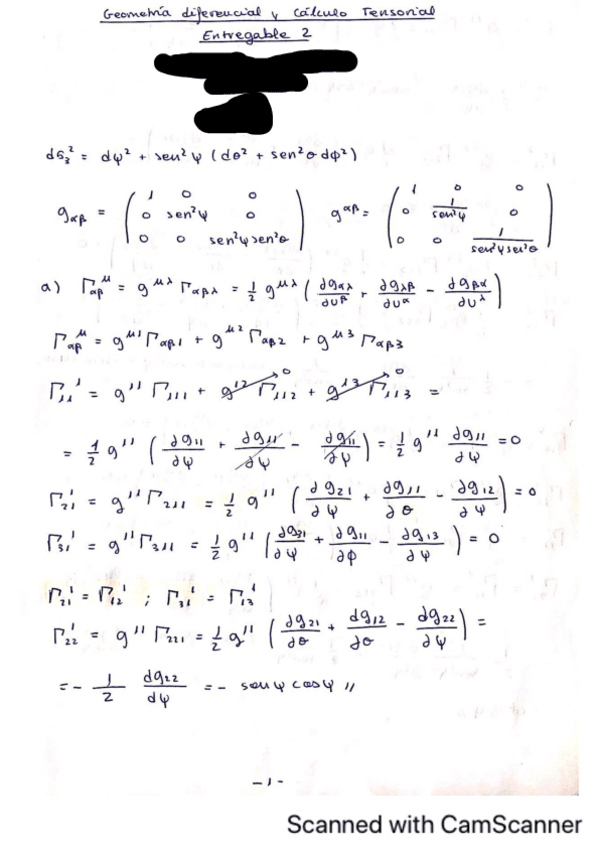 Geometría diferencial y Cálculo Tensorial
Entregable 2
ds₃² = dψ² + sen²ψ (dθ² + sen²θ dφ²)
g_αβ = ( 1 0 0 ; 0 sen²ψ 0 ; 0 0 sen²ψ sen²θ ) g^αβ = ( 1 0 0 ; 0 1/sen²ψ 0 ; 0 0 1/sen²ψ sen²θ )
a) Γ_αβ^μ = g^μλ Γ_αβλ = 1/2 g^μλ ( ∂g_αλ/∂u^β + ∂g_λβ/∂u^α − ∂g_βα/∂u^λ )
Γ_αβ^μ = g^μ1 Γ_αβ1 + g^μ2 Γ_αβ2 + g^μ3 Γ_αβ3
Γ_11^1 = g^11 Γ_111 + g^12 Γ_112 →0 + g^13 Γ_113 →0 =
= 1/2 g^11 ( ∂g_11/∂ψ + ∂g_11/∂ψ − ∂g_11/∂ψ ) = 1/2 g^11 ∂g_11/∂ψ = 0
Γ_21^1 = g^11 Γ_211 = 1/2 g^11 ( ∂g_21/∂ψ + ∂g_11/∂θ − ∂g_12/∂ψ ) = 0
Γ_31^1 = g^11 Γ_311 = 1/2 g^11 ( ∂g_31/∂ψ + ∂g_11/∂φ − ∂g_13/∂ψ ) = 0
Γ_21^1 = Γ_12^1 ; Γ_31^1 = Γ_13^1
Γ_22^1 = g^11 Γ_221 = 1/2 g^11 ( ∂g_21/∂θ + ∂g_12/∂θ − ∂g_22/∂ψ ) =
= − 1/2 dg_22/dψ = − senψ cosψ //
-1-
Scanned with CamScanner